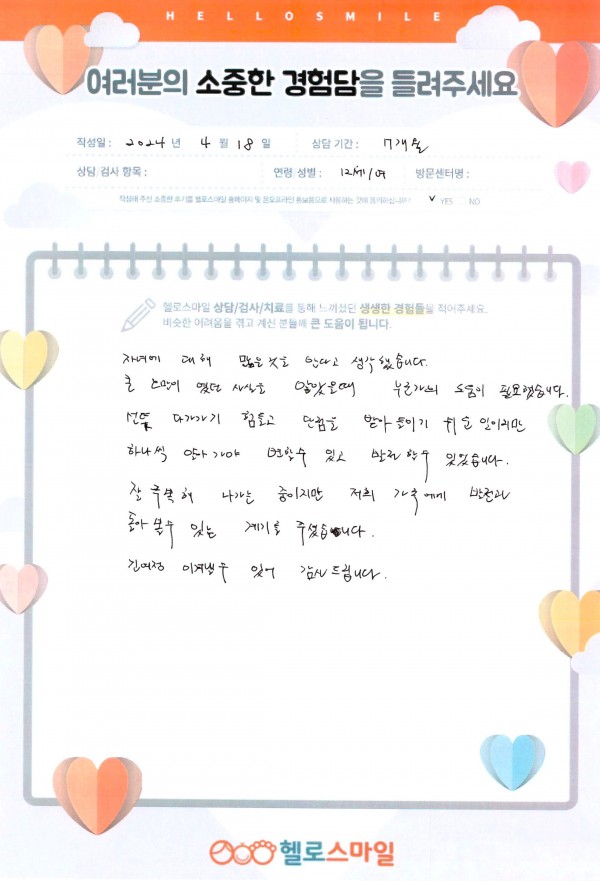 HELLOSMILE
여러분의 소중한 경험담을 들려주세요
작성일 : 2024 년 4 월 18 일 상담 기간 : 7개월
상담/검사 항목 : 연령/성별 : 12세/여 방문센터명 :
작성해 주신 소중한 후기를 헬로스마일 홈페이지 및 온오프라인 홍보용으로 사용하는 것에 동의하십니까? ✓ YES NO
헬로스마일 상담/검사/치료를 통해 느끼셨던 생생한 경험들을 적어주세요.
비슷한 어려움을 겪고 계신 분들께 큰 도움이 됩니다.
자녀에 대해 많은 것을 안다고 생각했습니다.
큰 오만이 였던 사실을 알았을때 누군가의 도움이 필요했습니다.
선뜻 다가가기 힘들고 받아들이기 쉬운 일이지만
하나씩 알아가야 변할수 있고 발전할수 있었습니다.
잘 극복해 나가는 중이지만 저희 가족에게 발전과
돌아볼수 있는 계기를 주셨습니다.
긴여정 이겨낼수 있어 감사드립니다.
헬로스마일